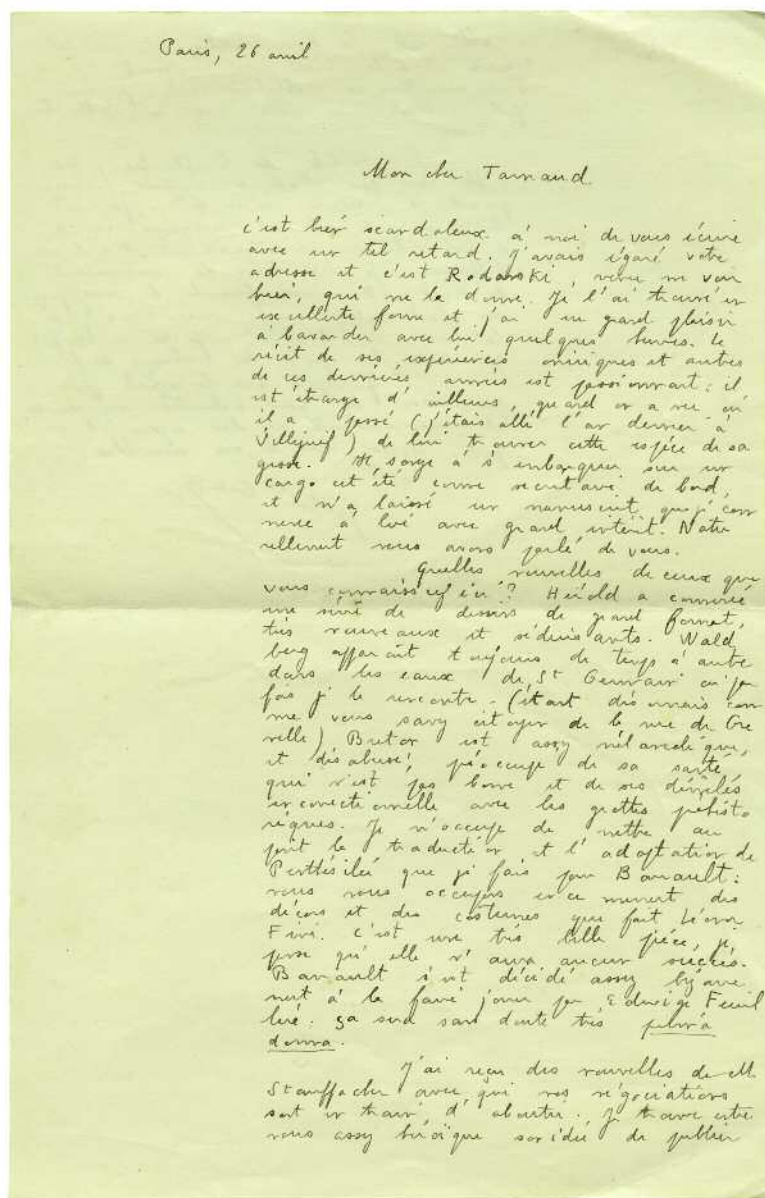 Paris, 26 avril
Mon cher Tarnaud
c'est bien scandaleux à moi de vous écrire
avec un tel retard. J'avais égaré votre
adresse et c'est Rodanski, venu me voir
hier, qui me la donne. Je l'ai trouvé en
excellente forme et j'ai eu grand plaisir
à bavarder avec lui quelques heures. Le
récit de ses expériences oniriques et autres
de ces dernières années est passionnant : il
est étrange d'ailleurs, quand on a vu où
il a passé (j'étais allé l'an dernier à
Villejuif) de lui trouver cette espèce de sa
gesse. Il songe à s'embarquer sur un
cargo cet été comme secrétaire de bord,
et m'a laissé un manuscrit que je com
mence à lire avec grand intérêt. Natu
rellement nous avons parlé de vous.
Quelles nouvelles de ceux que
vous connaissez ici ? Hérold a commencé
une série de dessins de grand format,
très nouveaux et séduisants. Wald
berg apparaît toujours de temps à autre
dans les eaux de St Germain où par
fois je le rencontre - (étant désormais com
me vous savez citoyen de la rue de Gre
nelle) Breton est assez mélancolique,
et désabusé, préoccupé de sa santé
qui n'est pas bonne et de ses démêlés
en correctionnelle avec les grottes préhisto
riques. Je m'occupe de mettre au
point la traduction et l'adaptation de
Penthésilée que je fais pour Barrault :
nous nous occupons en ce moment des
décors et des costumes que fait Léonor
Fini. C'est une très belle pièce, je
pense qu'elle n'aura aucun succès.
Barrault s'est décidé assez bizarre
ment à la faire jouer par Edwige Feuil
lère : ça sera sans doute très prima
donna.
J'ai reçu des nouvelles de M
Stauffacher avec qui nos négociations
sont en train d'aboutir. Je trouve entre
nous assez héroïque son idée de publier